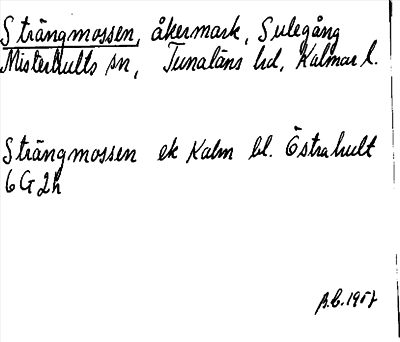 Strängmossen, åkermark, Sulegång
Misterhults sn, Tunaläns hd, Kalmar l.
Strängmossen ek Kalm bl. Östrahult
6G2h
B.E. 1957